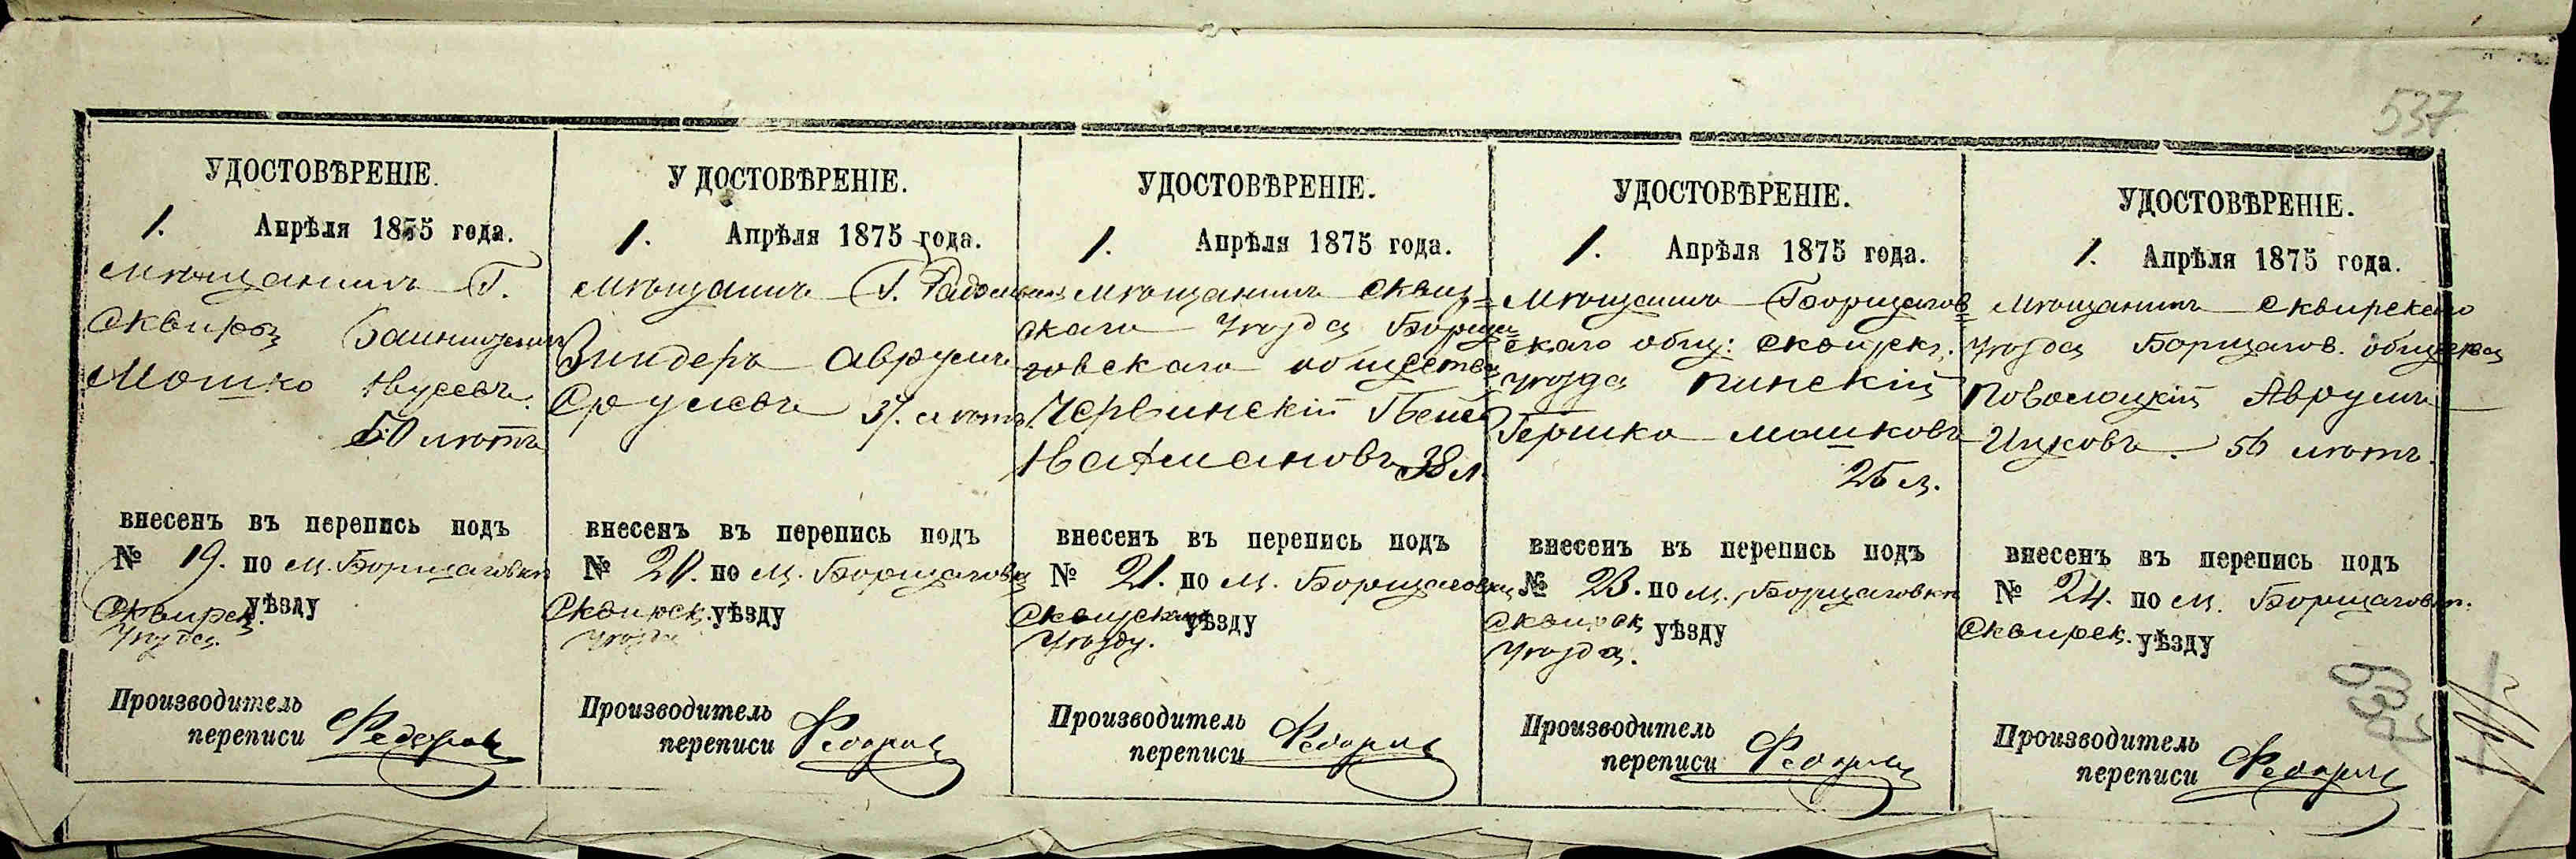 537
УДОСТОВѢРЕНІЕ.
1. Апрѣля 1875 года.
Мѣщанинъ Г.
Сквиры
Мошко
50 лѣтъ
внесенъ въ перепись подъ
№ 19. по м. Борщаговкѣ
Сквирск. уѣзду
Уѣзда.
Производитель
переписи Федоровъ
УДОСТОВѢРЕНІЕ.
1. Апрѣля 1875 года.
Мѣщанинъ Г.
Зиндеръ Аврумъ
Срулевъ 37. лѣтъ
внесенъ въ перепись подъ
№ 20. по м. Борщаговкѣ
Сквирск. уѣзду
Уѣзда
Производитель
переписи Федоровъ
УДОСТОВѢРЕНІЕ.
1. Апрѣля 1875 года.
Мѣщанинъ Сквир=
скаго Уѣзда Борща=
говскаго общества
Червинскій
38 л.
внесенъ въ перепись подъ
№ 21. по м. Борщаговкѣ
Сквирскаго уѣзду
Уѣзду.
Производитель
переписи Федоровъ
УДОСТОВѢРЕНІЕ.
1. Апрѣля 1875 года.
Мѣщанинъ Борщагов=
скаго общ: Сквирск.
уѣзда Пинскій
Гершко Мошковъ
внесенъ въ перепись подъ
№ 23. по м. Борщаговкѣ
Сквирск уѣзду
Уѣзда.
Производитель
переписи Федоровъ
УДОСТОВѢРЕНІЕ.
1. Апрѣля 1875 года.
Мѣщанинъ Сквирскаго
Уѣзда Борщагов. общества
Поволоцкій Аврумъ
Ицковъ. 56 лѣтъ.
внесенъ въ перепись подъ
№ 24. по м. Борщаговк.
Сквирск. уѣзду
Производитель
переписи Федоровъ